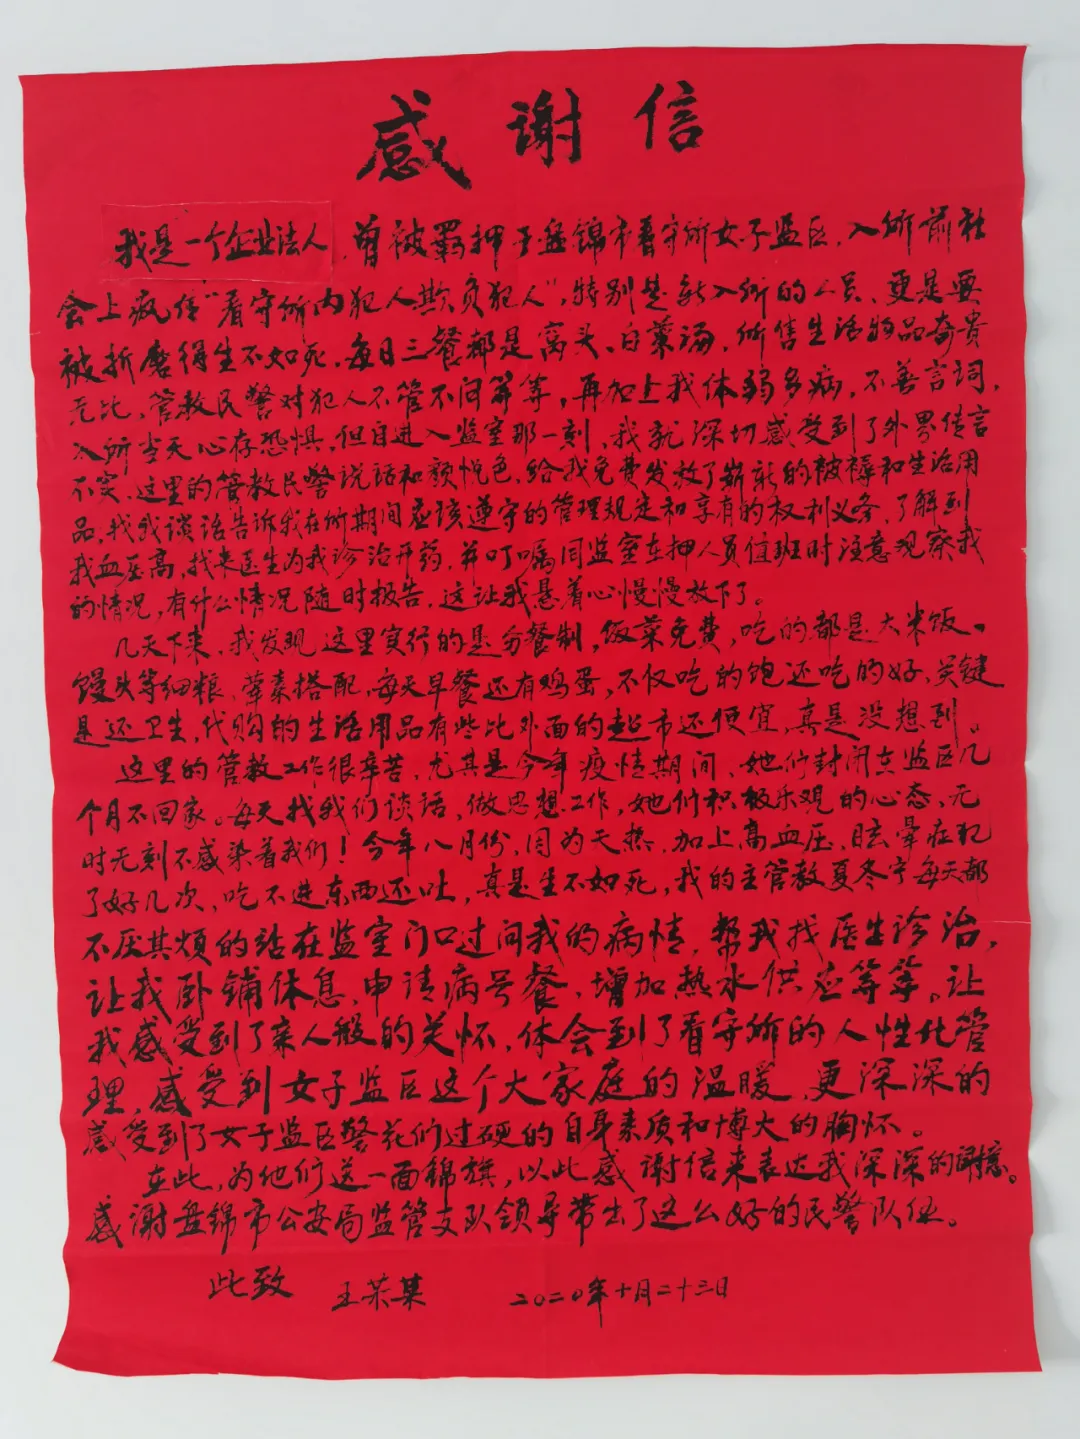 感谢信
我是一个企业法人，曾被羁押于盘锦市看守所女子监区，入所前社
会上疯传“看守所内犯人欺负犯人”，特别是新入所的人员，更是要
被折磨得生不如死，每日三餐都是窝头、白菜汤，所售生活物品奇贵
无比，管教民警对犯人不管不问等等，再加上我体弱多病，不善言词，
入所当天心存恐惧，但自进入监室那一刻，我就深切感受到了外界传言
不实，这里的管教民警说话和颜悦色，给我免费发放了崭新的被褥和生活用
品，找我谈话告诉我在所期间应该遵守的管理规定和享有的权利义务，了解到
我血压高，找来医生为我诊治开药，并叮嘱同监室在押人员值班时注意观察我
的情况，有什么情况随时报告，这让我悬着心慢慢放下了。
几天下来，我发现这里实行的是分餐制，饭菜免费，吃的都是大米饭。
馒头等细粮，荤素搭配，每天早餐还有鸡蛋，不仅吃的饱还吃的好，关键
是还卫生，代购的生活用品有些比外面的超市还便宜，真是没想到。
这里的管教工作很辛苦，尤其是今年疫情期间，她们封闭在监区几
个月不回家。每天找我们谈话，做思想工作，她们积极乐观的心态，无
时无刻不感染着我们！今年八月份，因为天热，加上高血压，眩晕症犯
了好几次，吃不进东西还吐，真是生不如死，我的主管教夏冬宁每天都
不厌其烦的站在监室门口过问我的病情，帮我找医生诊治，
让我卧铺休息，申请病号餐，增加热水供应等等。让
我感受到了亲人般的关怀，体会到了看守所的人性化管
理，感受到女子监区这个大家庭的温暖，更深深的
感受到了女子监区警花们过硬的自身素质和博大的胸怀。
在此，为他们送一面锦旗，以此感谢信来表达我深深的谢意。
感谢盘锦市公安局监管支队领导带出了这么好的民警队伍。
此致 王荣某 二〇二〇年十月二十三日